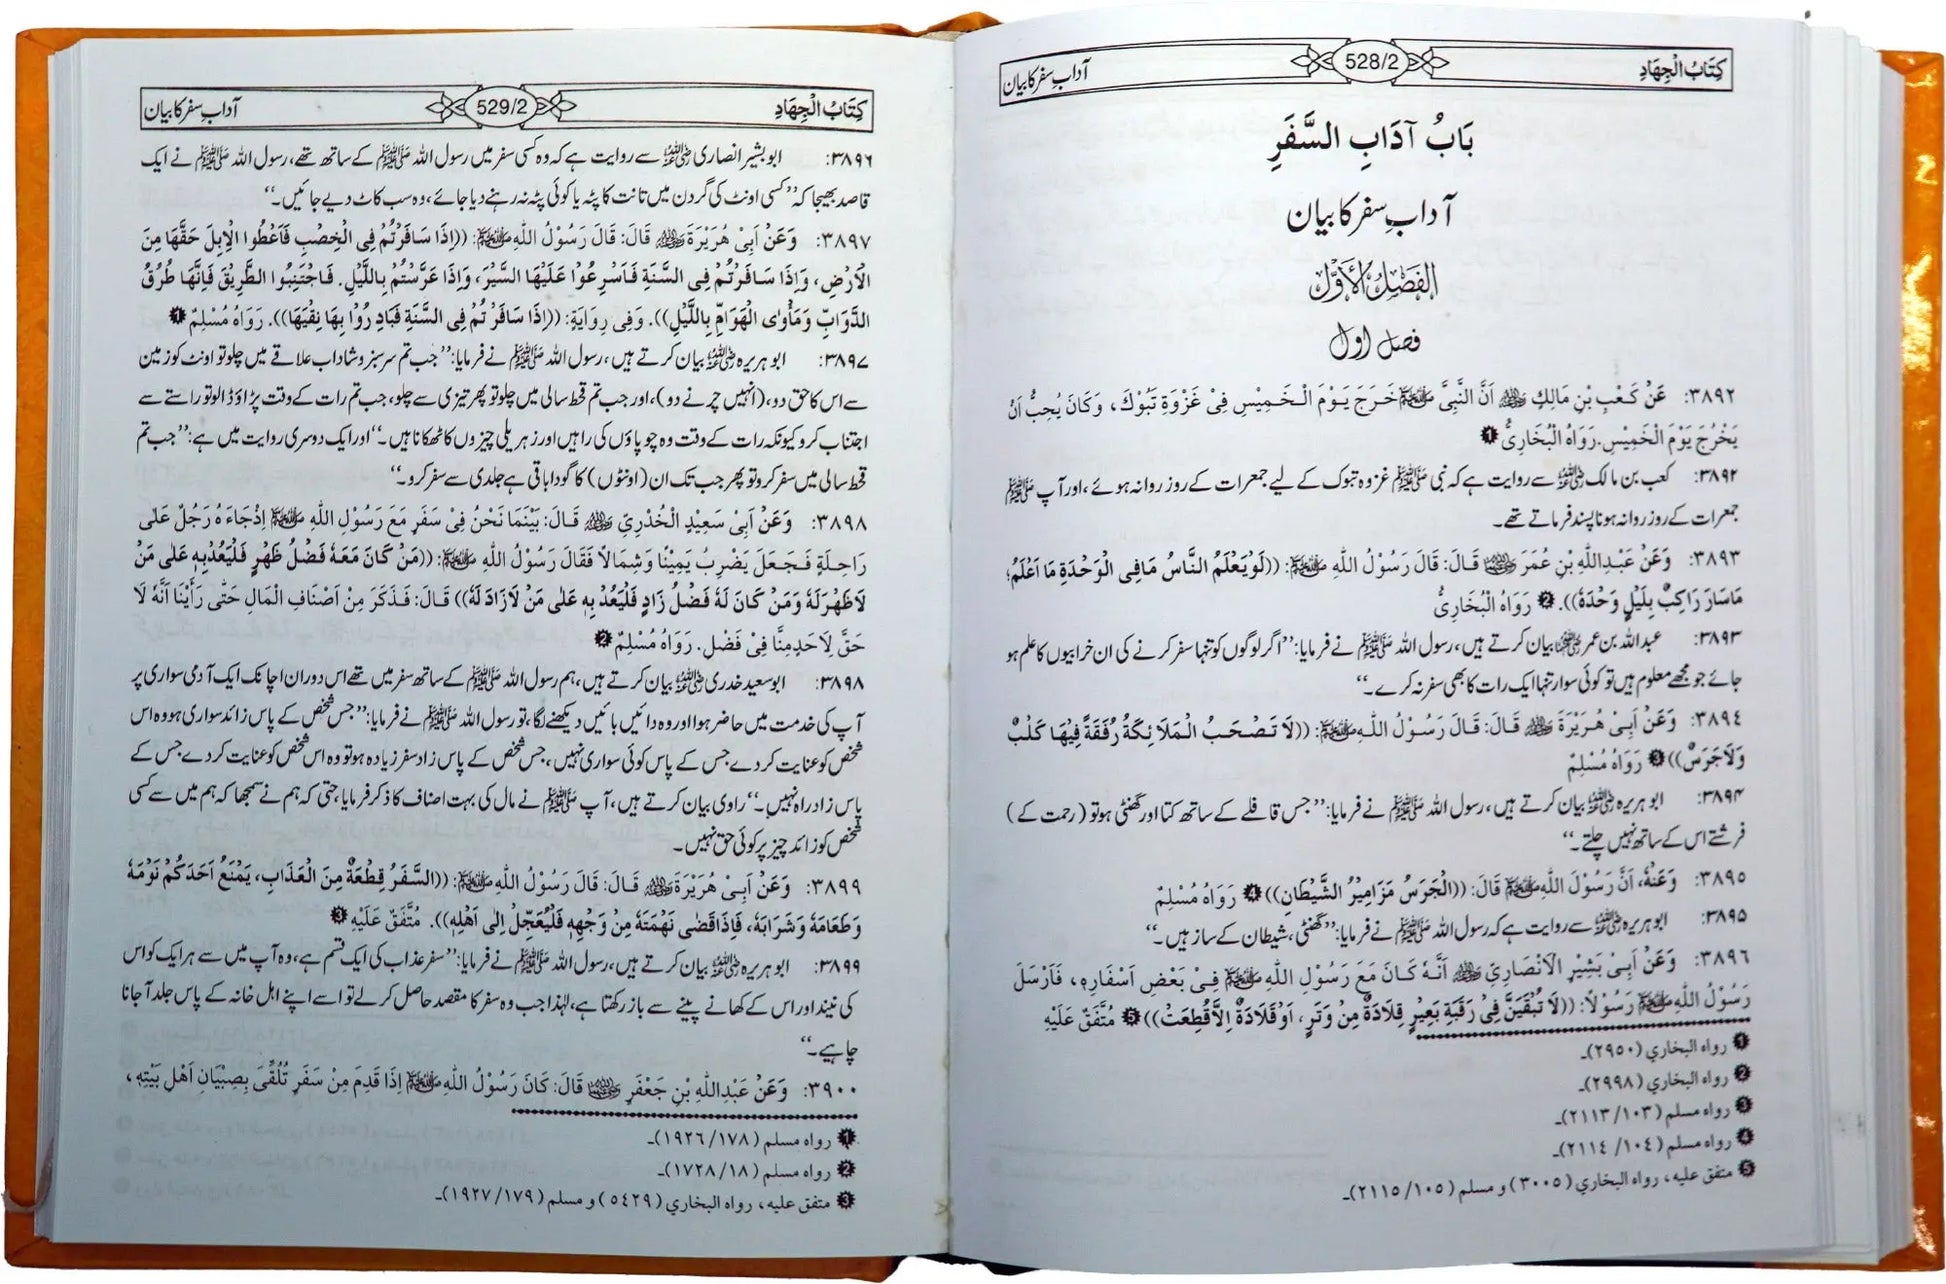 کِتَابُ الْجِهَادِ 528/2 آدابِ سفر کا بیان
بَابُ آدَابِ السَّفَرِ
آدابِ سفر کا بیان
الفَصْلُ الأَوَّل
فصل اول
٣٨٩٢: عَنْ كَعْبِ بْنِ مَالِكٍ ؓ أَنَّ النَّبِيَّ ﷺ خَرَجَ يَوْمَ الْخَمِيْسِ فِيْ غَزْوَةِ تَبُوْكَ، وَكَانَ يُحِبُّ اَنْ
يَخْرُجَ يَوْمَ الْخَمِيْسِ. رَوَاهُ الْبُخَارِيُّ ❶
۳۸۹۲: کعب بن مالک ؓ سے روایت ہے کہ نبی ﷺ غزوہ تبوک کے لیے جمعرات کے روز روانہ ہوئے، اور آپ ﷺ
جمعرات کے روز روانہ ہونا پسند فرماتے تھے۔
٣٨٩٣: وَعَنْ عَبْدِاللّٰهِ بْنِ عُمَرَ ؓ قَالَ: قَالَ رَسُوْلُ اللّٰهِ ﷺ: ((لَوْ يَعْلَمُ النَّاسُ مَا فِى الْوَحْدَةِ مَا اَعْلَمُ؛
مَا سَارَ رَاكِبٌ بِلَيْلٍ وَحْدَهٗ)). ❷ رَوَاهُ الْبُخَارِيُّ
۳۸۹۳: عبداللہ بن عمر ؓ بیان کرتے ہیں، رسول اللہ ﷺ نے فرمایا: ’’اگر لوگوں کو تنہا سفر کرنے کی ان خرابیوں کا علم ہو
جائے جو مجھے معلوم ہیں تو کوئی سوار تنہا ایک رات کا بھی سفر نہ کرے۔‘‘
٣٨٩٤: وَعَنْ اَبِىْ هُرَيْرَةَ ؓ قَالَ: قَالَ رَسُوْلُ اللّٰهِ ﷺ: ((لَا تَصْحَبُ الْمَلَائِكَةُ رُفْقَةً فِيْهَا كَلْبٌ
وَلَا جَرَسٌ)) ❸ رَوَاهُ مُسْلِمٌ
۳۸۹۴: ابو ہریرہ ؓ بیان کرتے ہیں، رسول اللہ ﷺ نے فرمایا: ’’جس قافلے کے ساتھ کتا اور گھنٹی ہو تو (رحمت کے)
فرشتے اس کے ساتھ نہیں چلتے۔‘‘
٣٨٩٥: وَعَنْهُ، اَنَّ رَسُوْلَ اللّٰهِ ﷺ قَالَ: ((الْجَرَسُ مَزَامِيْرُ الشَّيْطَانِ)) ❹ رَوَاهُ مُسْلِمٌ
۳۸۹۵: ابو ہریرہ ؓ سے روایت ہے کہ رسول اللہ ﷺ نے فرمایا: ’’گھنٹی، شیطان کے ساز ہیں۔‘‘
٣٨٩٦: وَعَنْ اَبِىْ بَشِيْرِ الْاَنْصَارِيِّ ؓ اَنَّهٗ كَانَ مَعَ رَسُوْلِ اللّٰهِ ﷺ فِىْ بَعْضِ اَسْفَارِهٖ، فَاَرْسَلَ
رَسُوْلُ اللّٰهِ ﷺ رَسُوْلًا: ((لَا تُبْقَيَنَّ فِىْ رَقَبَةِ بَعِيْرٍ قِلَادَةٌ مِنْ وَتَرٍ، اَوْ قِلَادَةٌ اِلَّا قُطِعَتْ)) ❺ مُتَّفَقٌ عَلَيْهِ
❶ رواه البخاري (٢٩٥٠)۔
❷ رواه البخاري (٢٩٩٨)۔
❸ رواه مسلم (١٠٣/ ٢١١٣)۔
❹ رواه مسلم (١٠٤/ ٢١١٤)۔
❺ متفق عليه، رواه البخاري (٣٠٠٥) و مسلم (١٠٥/ ٢١١٥)۔
کِتَابُ الْجِهَادِ 529/2 آدابِ سفر کا بیان
۳۸۹۶: ابو بشیر انصاری ؓ سے روایت ہے کہ وہ کسی سفر میں رسول اللہ ﷺ کے ساتھ تھے، رسول اللہ ﷺ نے ایک
قاصد بھیجا کہ ’’کسی اونٹ کی گردن میں تانت کا پٹہ یا کوئی پٹہ نہ رہنے دیا جائے، وہ سب کاٹ دیے جائیں۔‘‘
٣٨٩٧: وَعَنْ اَبِىْ هُرَيْرَةَ ؓ قَالَ: قَالَ رَسُوْلُ اللّٰهِ ﷺ: ((اِذَا سَافَرْتُمْ فِى الْخِصْبِ فَاَعْطُوا الْاِبِلَ حَقَّهَا مِنَ
الْاَرْضِ، وَاِذَا سَافَرْتُمْ فِى السَّنَةِ فَاَسْرِعُوْا عَلَيْهَا السَّيْرَ، وَاِذَا عَرَّسْتُمْ بِاللَّيْلِ. فَاجْتَنِبُوا الطَّرِيْقَ فَاِنَّهَا طُرُقُ
الدَّوَابِّ وَمَأْوَى الْهَوَامِّ بِاللَّيْلِ)). وَفِى رِوَايَةٍ: ((اِذَا سَافَرْتُمْ فِى السَّنَةِ فَبَادِرُوْا بِهَا نِقْيَهَا)). رَوَاهُ مُسْلِمٌ ❶
۳۸۹۷: ابو ہریرہ ؓ بیان کرتے ہیں، رسول اللہ ﷺ نے فرمایا: ’’جب تم سرسبز و شاداب علاقے میں چلو تو اونٹ کو زمین
سے اس کا حق دو، (انہیں چرنے دو)، اور جب تم قحط سالی میں چلو تو پھر تیزی سے چلو، جب تم رات کے وقت پڑاؤ ڈالو تو راستے سے
اجتناب کرو کیونکہ رات کے وقت وہ چوپاؤں کی راہیں اور زہریلی چیزوں کا ٹھکانا ہیں۔‘‘ اور ایک دوسری روایت میں ہے: ’’جب تم
قحط سالی میں سفر کرو تو پھر جب تک ان (اونٹوں) کا گودا باقی ہے جلدی سے سفر کرو۔‘‘
٣٨٩٨: وَعَنْ اَبِىْ سَعِيْدِ الْخُدْرِيِّ ؓ قَالَ: بَيْنَمَا نَحْنُ فِىْ سَفَرٍ مَعَ رَسُوْلِ اللّٰهِ ﷺ اِذْ جَاءَهُ رَجُلٌ عَلٰى
رَاحِلَةٍ فَجَعَلَ يَضْرِبُ يَمِيْنًا وَشِمَالًا فَقَالَ رَسُوْلُ اللّٰهِ ﷺ: ((مَنْ كَانَ مَعَهٗ فَضْلُ ظَهْرٍ فَلْيَعُدْ بِهٖ عَلٰى مَنْ
لَا ظَهْرَ لَهٗ وَمَنْ كَانَ لَهٗ فَضْلُ زَادٍ فَلْيَعُدْ بِهٖ عَلٰى مَنْ لَا زَادَ لَهٗ)) قَالَ: فَذَكَرَ مِنْ اَصْنَافِ الْمَالِ حَتّٰى رَأَيْنَا اَنَّهٗ لَا
حَقَّ لِاَحَدٍ مِنَّا فِىْ فَضْلٍ. رَوَاهُ مُسْلِمٌ ❷
۳۸۹۸: ابو سعید خدری ؓ بیان کرتے ہیں، ہم رسول اللہ ﷺ کے ساتھ سفر میں تھے اس دوران اچانک ایک آدمی سواری پر
آپ کی خدمت میں حاضر ہوا اور وہ دائیں بائیں دیکھنے لگا، تو رسول اللہ ﷺ نے فرمایا: ’’جس شخص کے پاس زائد سواری ہو وہ اس
شخص کو عنایت کر دے جس کے پاس کوئی سواری نہیں، جس شخص کے پاس زادِ سفر زیادہ ہو تو وہ اس شخص کو عنایت کر دے جس کے
پاس زادِ راہ نہیں۔‘‘ راوی بیان کرتے ہیں، آپ ﷺ نے مال کی بہت اصناف کا ذکر فرمایا، حتیٰ کہ ہم نے سمجھا کہ ہم میں سے کسی
شخص کو زائد چیز پر کوئی حق نہیں۔
٣٨٩٩: وَعَنْ اَبِىْ هُرَيْرَةَ ؓ قَالَ: قَالَ رَسُوْلُ اللّٰهِ ﷺ: ((السَّفَرُ قِطْعَةٌ مِنَ الْعَذَابِ، يَمْنَعُ اَحَدَكُمْ نَوْمَهٗ
وَطَعَامَهٗ وَشَرَابَهٗ، فَاِذَا قَضٰى نَهْمَتَهٗ مِنْ وَجْهِهٖ فَلْيُعَجِّلْ اِلٰى اَهْلِهٖ)). مُتَّفَقٌ عَلَيْهِ ❸
۳۸۹۹: ابو ہریرہ ؓ بیان کرتے ہیں، رسول اللہ ﷺ نے فرمایا: ’’سفر عذاب کی ایک قسم ہے، وہ آپ میں سے ہر ایک کو اس
کی نیند اور اس کے کھانے پینے سے باز رکھتا ہے، لہٰذا جب وہ سفر کا مقصد حاصل کر لے تو اسے اپنے اہل خانہ کے پاس جلد آ جانا
چاہیے۔‘‘
٣٩٠٠: وَعَنْ عَبْدِاللّٰهِ بْنِ جَعْفَرٍ ؓ قَالَ: كَانَ رَسُوْلُ اللّٰهِ ﷺ اِذَا قَدِمَ مِنْ سَفَرٍ تُلُقِّىَ بِصِبْيَانِ اَهْلِ بَيْتِهٖ،
❶ رواه مسلم (١٧٨/ ١٩٢٦)۔
❷ رواه مسلم (١٨/ ١٧٢٨)۔
❸ متفق عليه، رواه البخاري (٥٤٢٩) و مسلم (١٧٩/ ١٩٢٧)۔